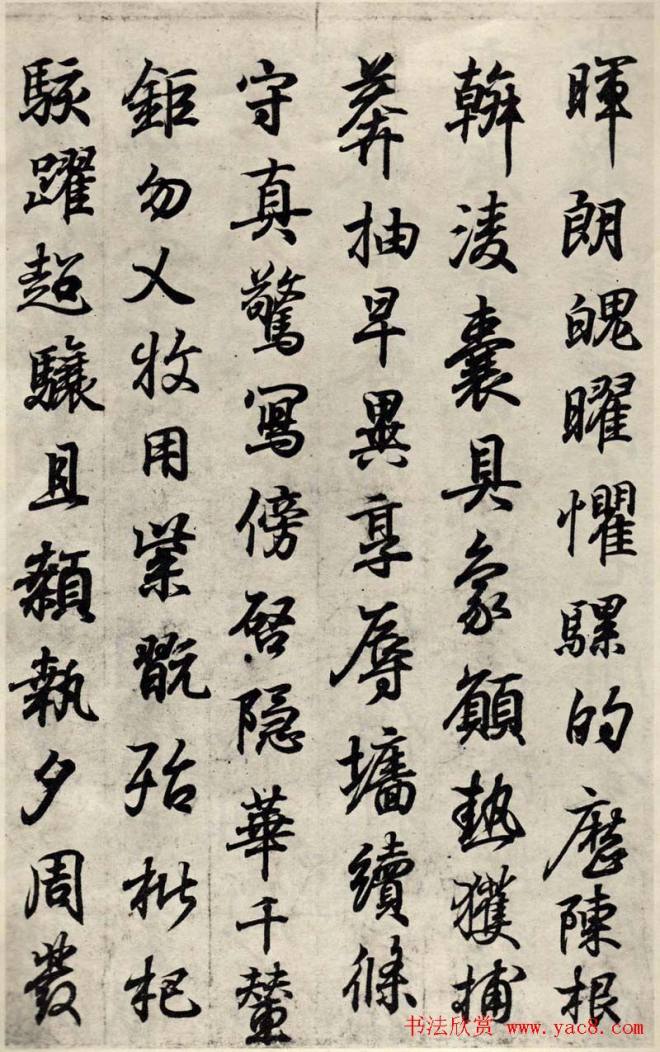 暉朗魄曜懼騾的歷陳根
斡凌囊具象願熱獲捕
莽抽早異享辱墻續條
守真驚寫傍啓隱華千輦
鉅勿乂牧用業翫殆枇杷
駭躍超驤且顙執夕周發
书法欣赏 www.yac8.com